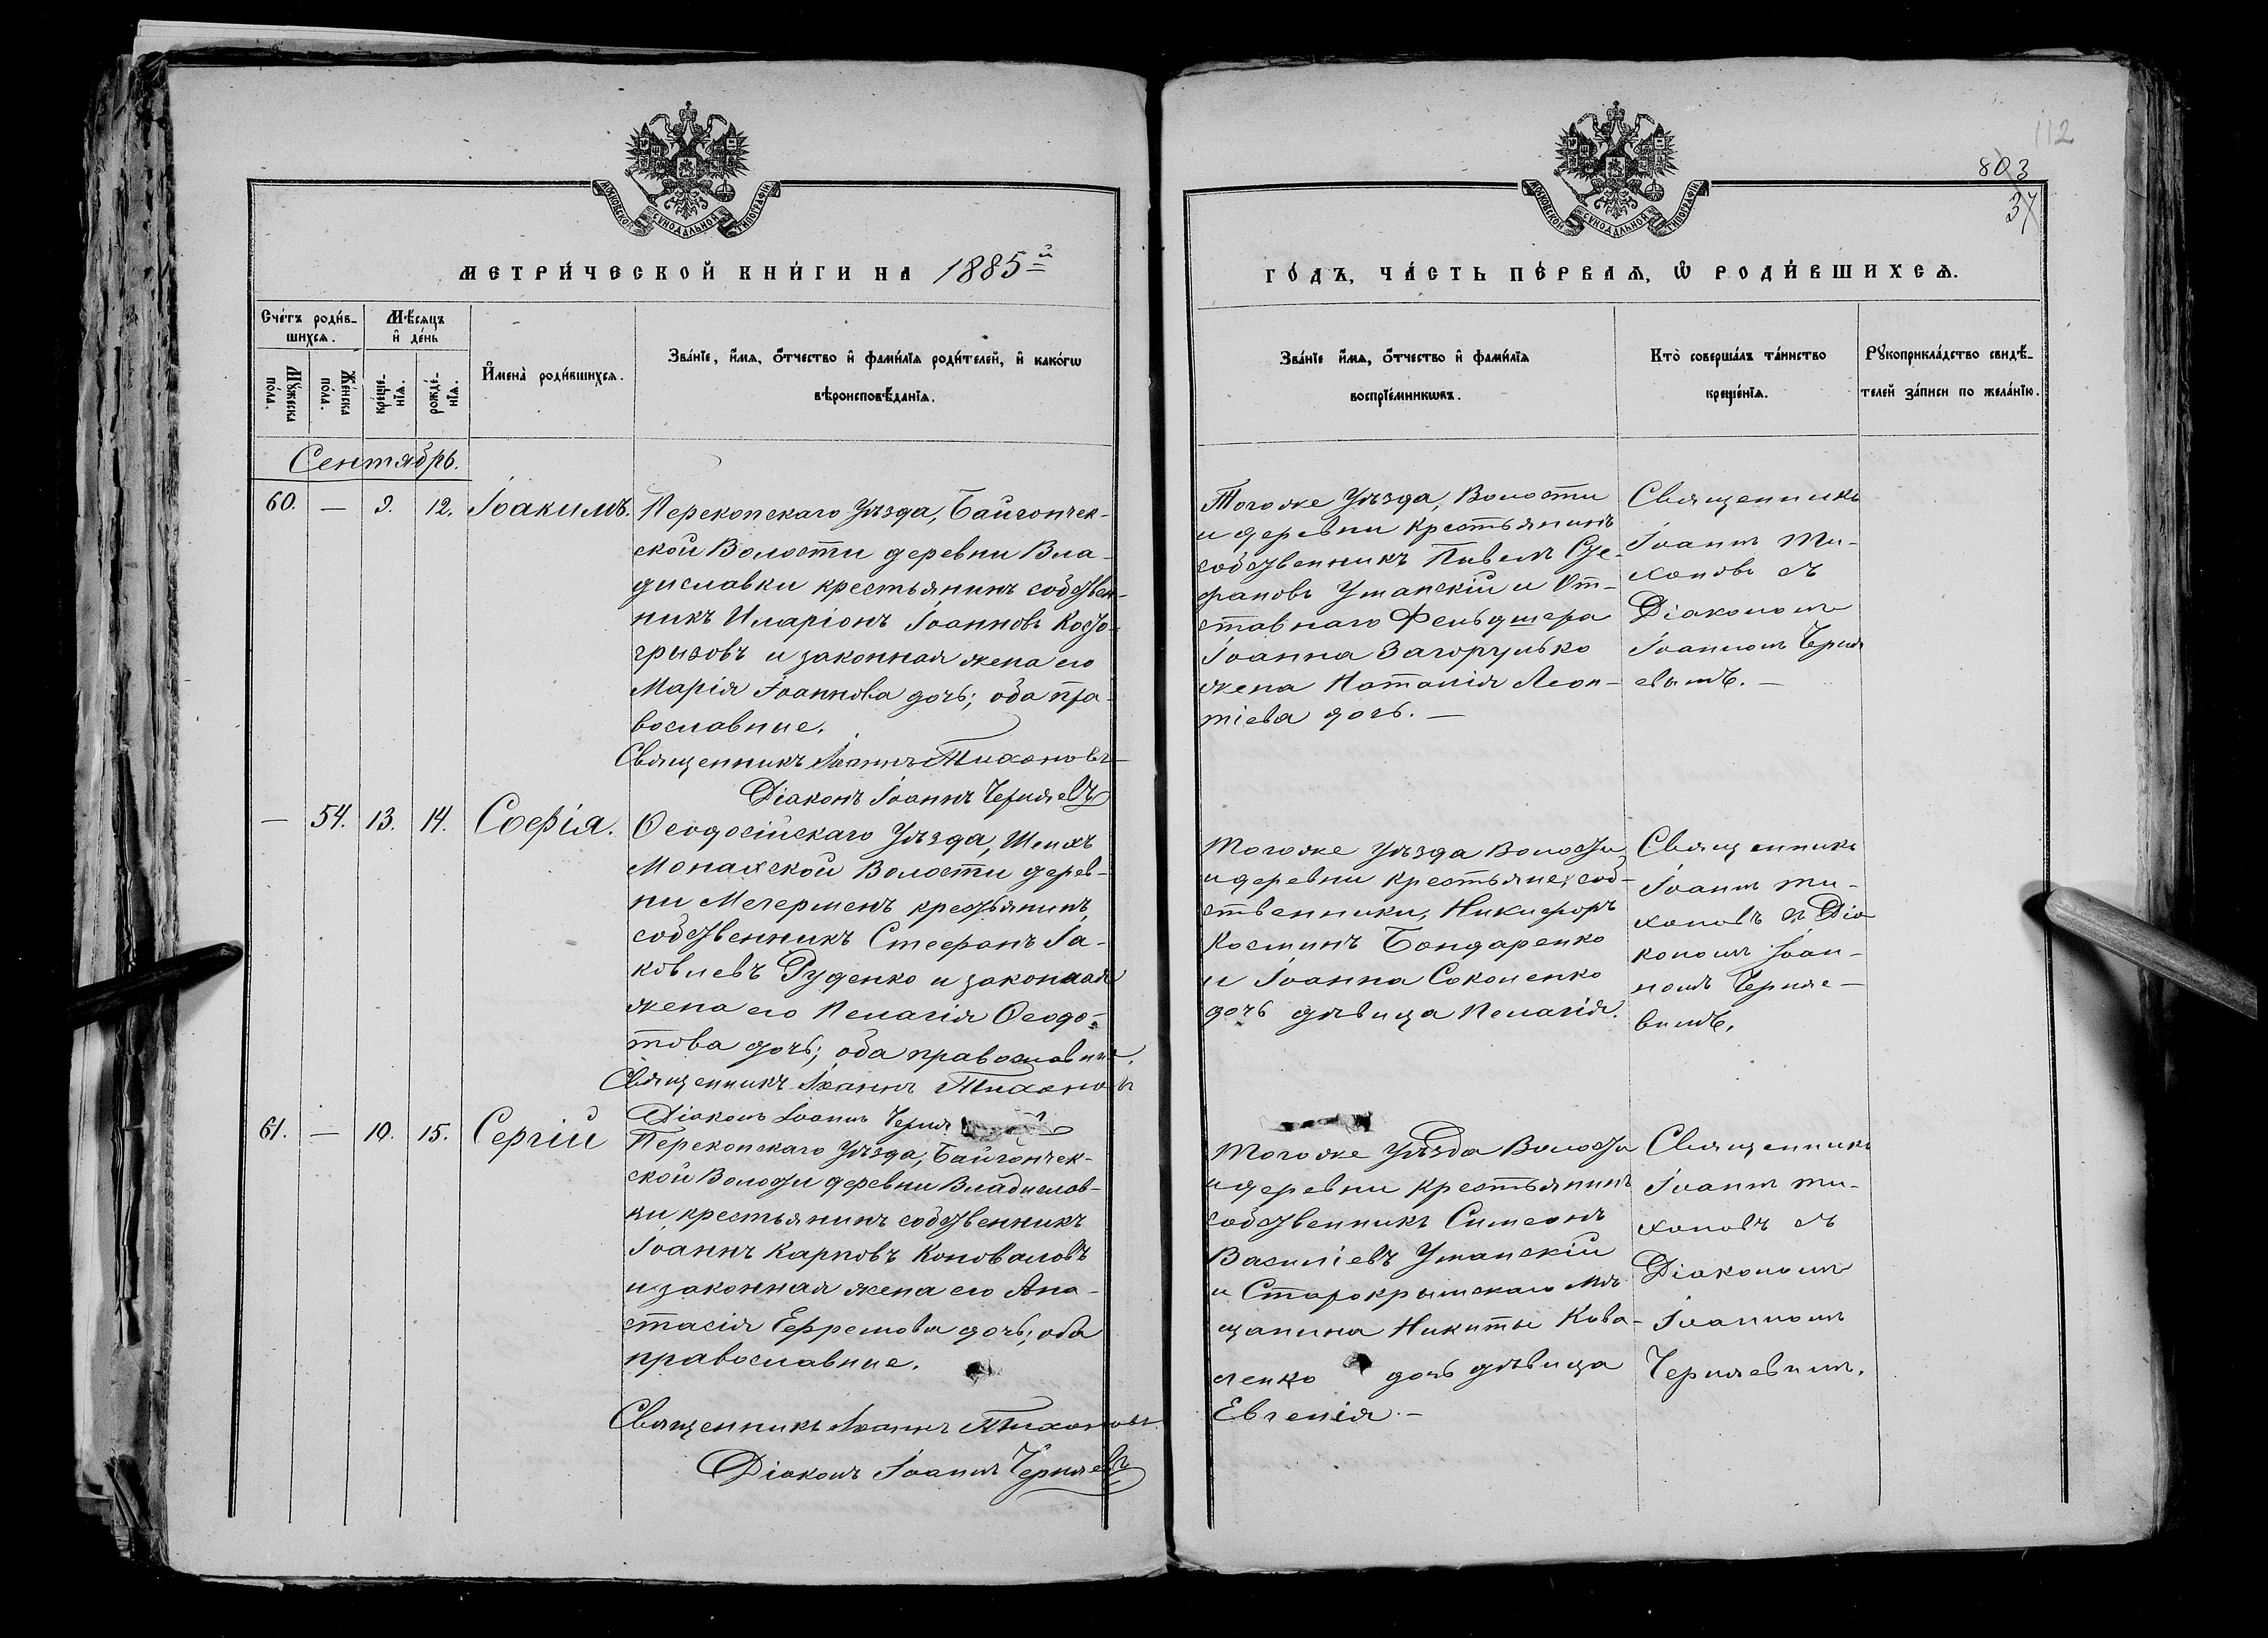 112
803
37
МОСКОВСКОЙ СѴНОДАЛЬНОЙ ТИПОГРАФІИ
МОСКОВСКОЙ СѴНОДАЛЬНОЙ ТИПОГРАФІИ
МЕТРИ́ЧЕСКОЙ КНИ́ГИ НА 1885й
ГО́ДЪ, ЧА́СТЬ ПЕ́РВАѦ, Ѡ҆ РОДИ́ВШИХСѦ.
Сче́тъ роди́в-
шихсѧ.
Мѣ́сѧцъ
и҆ де́нь
Мꙋ́жеска
пола.
Же́нска
пола.
креще́-
нїѧ.
рожде́-
нїѧ.
И҆мена̀ роди́вшихсѧ.
Зва́нїе, и҆́мѧ, ѻ҆́тчество и҆ фами́лїѧ роди́телей, и҆ како́гѡ
вѣроисповѣ́данїѧ.
Зва́нїе и҆́мѧ, ѻ҆́тчество и҆ фами́лїѧ
воспрїе́мникѡвъ.
Кто̀ соверша́лъ та́инство
креще́нїѧ.
Рꙋкоприкла́дство свидѣ́-
телей за́писи по жела́нїю.
Сентябрь.
60. — 9. 12. Іоакимъ.
Перекопскаго Уѣзда, Байгончек-
ской Волости деревни Вла-
диславки крестьянинъ собствен-
никъ Иларіонъ Іоанновъ Косо-
грызовъ и законная жена его
Марія Іоаннова дочь; оба пра-
вославные.
Священникъ Іоаннъ Тихоновъ
Діаконъ Іоаннъ Черняевъ
Тогоже Уѣзда, Волости
и деревни крестьянинъ
собственникъ Павелъ Сте-
фановъ Уманскій и От-
ставнаго Фельдшера
Іоанна Загорулько
жена Наталія Леон-
тіева дочь. —
Священникъ
Іоаннъ Ти-
хоновъ съ
Діакономъ
Іоанномъ Черня
евымъ. —
— 54. 13. 14. Софія.
Ѳеодосійскаго Уѣзда, Шейхъ
Монахской Волости дерев-
ни Мечерменъ крестьянинъ
собственникъ Стефанъ Іа-
ковлевъ Руденко и законная
жена его Пелагія Ѳеодо-
това дочь; оба православные.
Священникъ Іоаннъ Тихоновъ
Діаконъ Іоаннъ Черня
Тогоже Уѣзда Волости
и деревни крестьяне, соб-
ственники, Никифоръ
Косминъ Бондаренко
и Іоанна Соколенко
дочь дѣвица Пелагія.
Священникъ
Іоаннъ Ти-
хоновъ съ Діа
кономъ Іоан-
номъ Черняе-
вымъ.
61. — 10. 15. Сергій
Перекопскаго Уѣзда, Байгончек-
ской Волости деревни Владислав-
ки крестьянинъ собственникъ
Іоаннъ Карповъ Коноваловъ
и законная жена его Ана-
стасія Ефремова дочь; оба
православные.
Священникъ Іоаннъ Тихоновъ
Діаконъ Іоаннъ Черняевъ
Тогоже Уѣзда Волости
и деревни крестьянинъ
собственникъ Симеонъ
Василіевъ Уманскій
и Старокрымскаго Мѣ
щанина Никиты Кова-
ленко дочь дѣвица
Евгенія. —
Священникъ
Іоаннъ Ти-
хоновъ съ
Діакономъ
Іоанномъ
Черняевымъ.